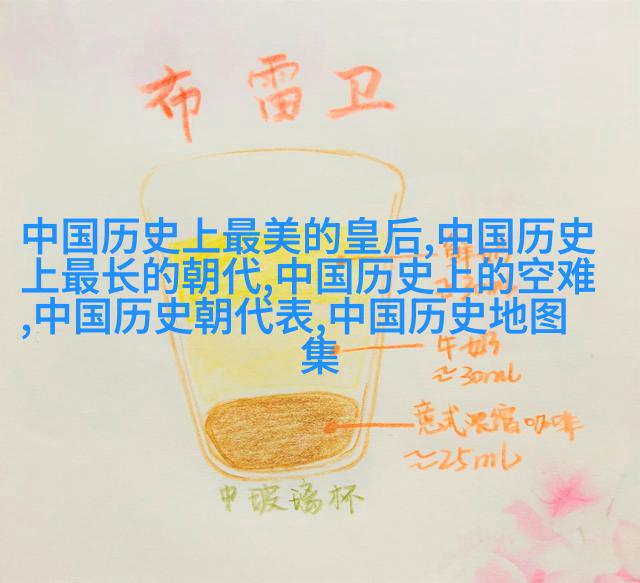 布雷卫
中国历史上最美的皇后,中国历史
上最长的朝代,中国历史上的空难
,中国历史朝代表,中国历史地图
集
牛奶
≈30ml
意式浓缩咖啡
≈25ml
中玻璃杯